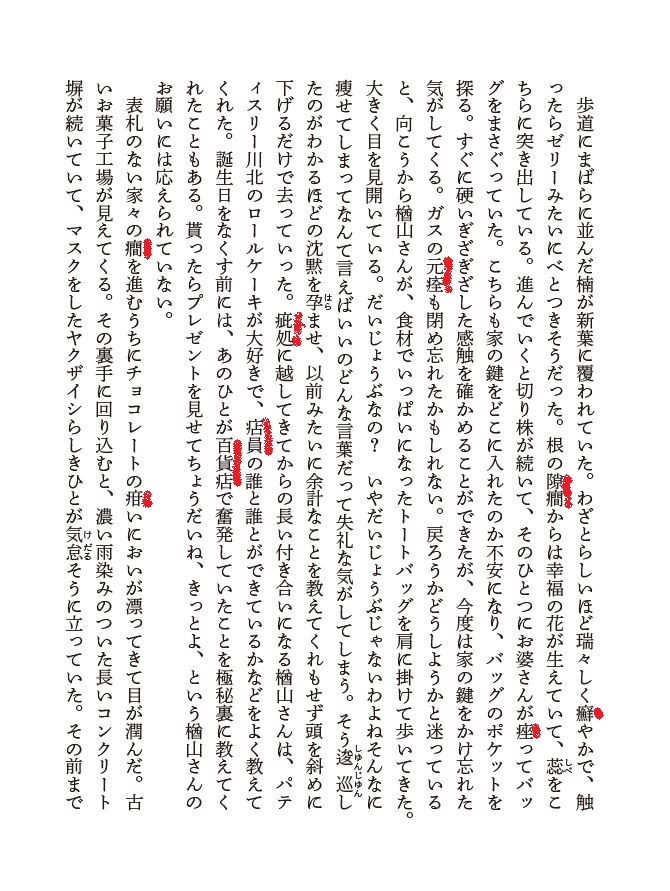 歩道にまばらに並んだ楠が新葉に覆われていた。わざとらしいほど瑞々しく癬やかで、触
ったらゼリーみたいにべとつきそうだった。根の隙癇からは幸福の花が生えていて、蕊をこ
しべ
ちらに突き出している。進んでいくと切り株が続いて、そのひとつにお婆さんが痤ってバッ
グをまさぐっていた。こちらも家の鍵をどこに入れたのか不安になり、バッグのポケットを
探る。すぐに硬いぎざぎざした感触を確かめることができたが、今度は家の鍵をかけ忘れた
気がしてくる。ガスの元痊も閉め忘れたかもしれない。戻ろうかどうしようかと迷っている
と、向こうから楢山さんが、食材でいっぱいになったトートバッグを肩に掛けて歩いてきた。
大きく目を見開いている。だいじょうぶなの？　いやだいじょうぶじゃないわよねそんなに
痩せてしまってなんて言えばいいのどんな言葉だって失礼な気がしてしまう。そう逡巡し
しゆんじゆん
たのがわかるほどの沈黙を孕ませ、以前みたいに余計なことを教えてくれもせず頭を斜めに
はら
下げるだけで去っていった。疵処に越してきてからの長い付き合いになる楢山さんは、パテ
ィスリー川北のロールケーキが大好きで、痁員の誰と誰とができているかなどをよく教えて
くれた。誕生日をなくす前には、あのひとが百貨痁で奮発していたことを極秘裏に教えてく
れたこともある。貰ったらプレゼントを見せてちょうだいね、きっとよ、という楢山さんの
お願いには応えられていない。
表札のない家々の癇を進むうちにチョコレートの疳いにおいが漂ってきて目が潤んだ。古
いお菓子工場が見えてくる。その裏手に回り込むと、濃い雨染みのついた長いコンクリート
塀が続いていて、マスクをしたヤクザイシらしきひとが気怠そうに立っていた。その前まで
けだる